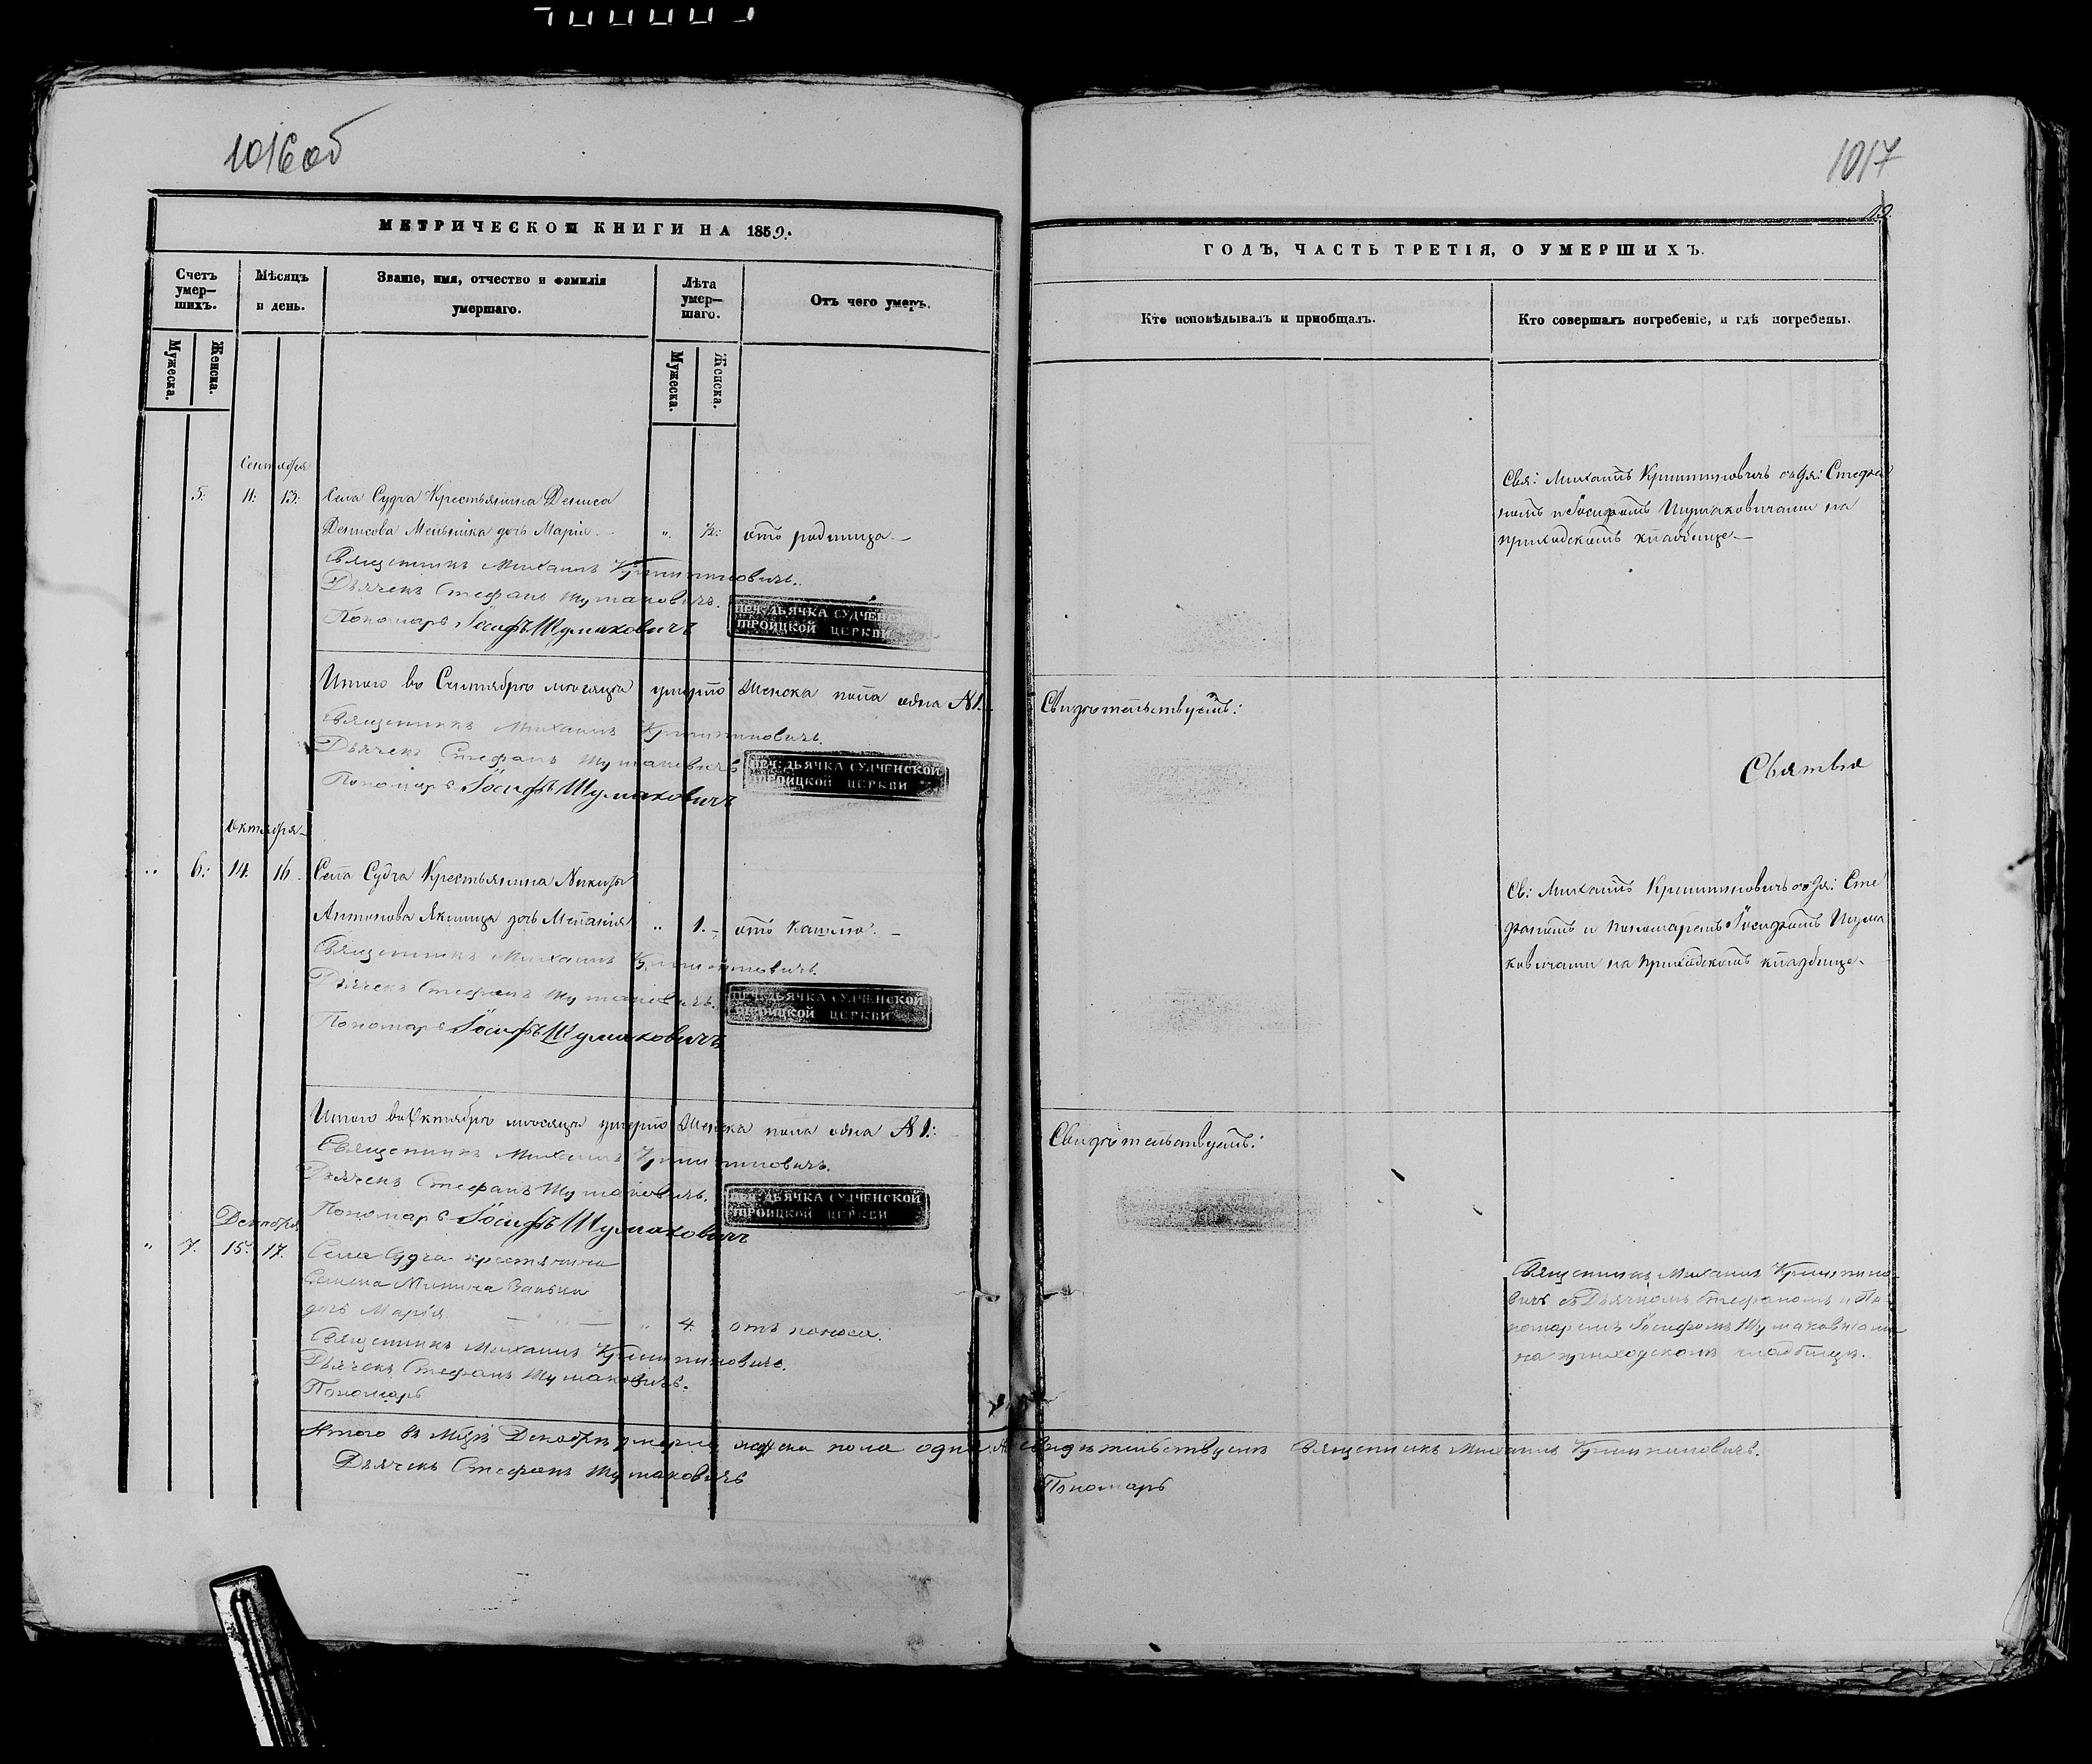 1016об
МЕТРИЧЕСКОЙ КНИГИ НА 1859:
Счетъ умер—шихъ.
Мужеска.
Женска.
Мѣсяцъ и день.
Званіе, имя, отчество и фамилія умершаго.
Лѣта умер—шаго.
Мужеска.
Женска.
Отъ чего умеръ.
Сентября
5: 11: 13: Села Судча Крестьянина Дениса
Денисова Мельника дочь Марія „ ½: отъ родимца
Священникъ Михаилъ Криштиновичъ.
Дьячекъ Стефанъ Шумаковичъ.
Пономарь Іосифъ Шумаковичъ
ПЕЧ: ДЬЯЧКА СУДЧЕНСКОЙ
ТРОИЦКОЙ ЦЕРКВИ
Итого въ Сентябрѣ мѣсяцѣ умерло Женска пола одна №1.
Священникъ Михаилъ Криштиновичъ.
Дьячекъ Стефанъ Шумаковичъ
Пономарь Іосифъ Шумаковичъ
ПЕЧ: ДЬЯЧКА СУДЧЕНСКОЙ
ТРОИЦКОЙ ЦЕРКВИ
Октября
„ 6: 14: 16. Села Судча Крестьянина Никиты
Антонова Якимца дочь Меланія „ 1. отъ кашлю.
Священникъ Михаилъ Криштиновичъ.
Дьячекъ Стефанъ Шумаковичъ.
Пономарь Іосифъ Шумаковичъ
ПЕЧ: ДЬЯЧКА СУДЧЕНСКОЙ
ТРОИЦКОЙ ЦЕРКВИ
Итого въ Октябрѣ мѣсяцѣ умерло Женска пола одна №1:
Священникъ Михаилъ Криштиновичъ.
Дьячекъ Стефанъ Шумаковичъ.
Пономарь Іосифъ Шумаковичъ
ПЕЧ: ДЬЯЧКА СУДЧЕНСКОЙ
ТРОИЦКОЙ ЦЕРКВИ
Декабря
„ 7. 15. 17. Села Судча крестьянина
Семена
дочь Марія „ 4. отъ поноса.
Священникъ Михаилъ Криштиновичъ.
Дьячекъ Стефанъ Шумаковичъ.
Пономарь
Итого въ Декабрѣ умерла женска пола одна
Дьячекъ Стефанъ Шумаковичъ
1017
ГОДЪ, ЧАСТЬ ТРЕТІЯ, О УМЕРШИХЪ.
Кто исповѣдывалъ и пріобщалъ.
Кто совершалъ погребеніе, и гдѣ погребены.
Свя: Михаилъ Криштиновичъ съ Дя: Стефа
номъ и Іосифомъ Шумаковичами на
приходскомъ кладбище
Свидѣтельствуетъ:
Св: Михаилъ Криштиновичъ съ Дя: Сте
фаномъ и пономаремъ Іосифомъ Шума
ковичами на приходскомъ кладбище
Свидѣтельствуетъ:
Священникъ Михаилъ Криштино
вичъ съ Дьячкомъ Стефаномъ и По
номаремъ Іосифомъ Шумаковичами
на приходскомъ кладбищѣ.
Свидѣтельствуемъ Священникъ Михаилъ Криштиновичъ.
Пономарь